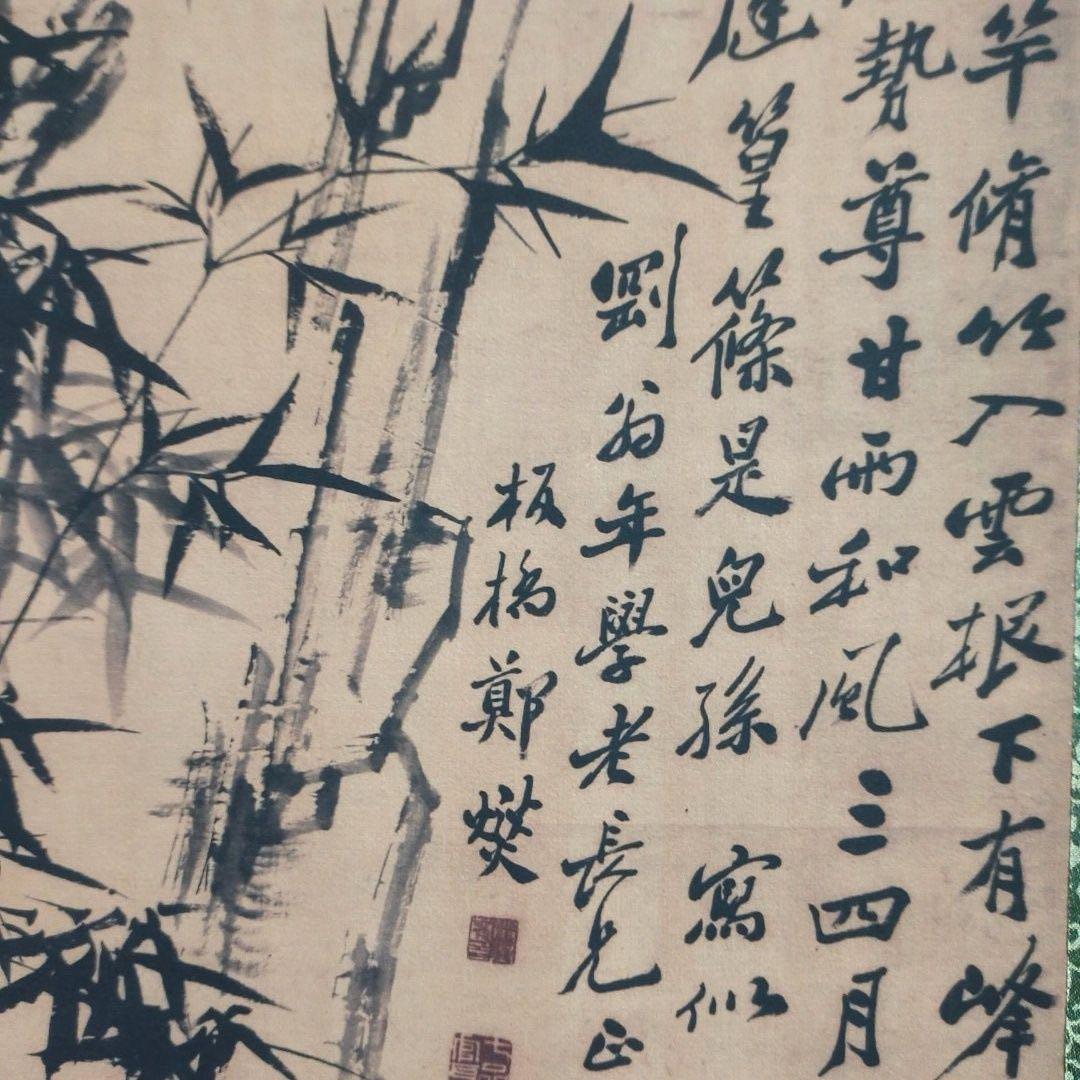 竿脩竹入雲根下有峰
勢尊甘雨和風三四月
篁篠是兒孫 寫似
劉翁年學老長兄正
板橋鄭燮